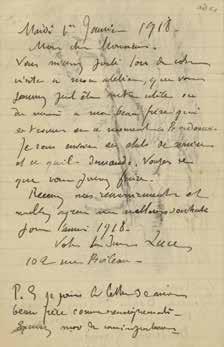 Mardi 1er Janvier 1918.
Mon cher Monsieur.
Vous m'aviez parlé lors de votre
visite à mon atelier, que vous
pourriez peut être être utile
ou au moins à mon beau frère qui
est encore en ce moment à Bordeaux.
Je vous envoie ses états de services
et ce qu'il demande. Voyez ce
que vous pouvez faire.
Recevez nos remerciements et
veuillez agréer nos meilleurs souhaits
pour l'année 1918.
Votre Luce
102 rue Boileau.
P.S. je joins la lettre de mon
beau frère comme renseignements